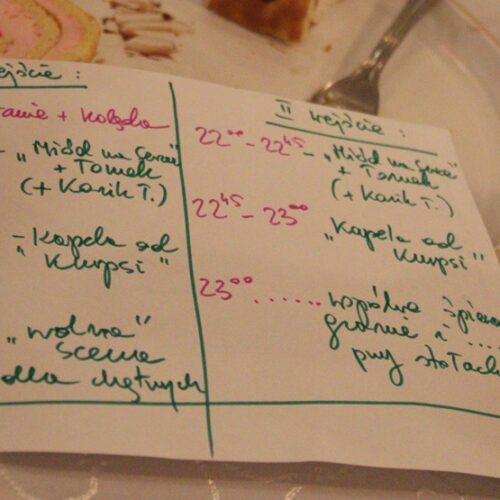 ejście :
tanie + kolęda
- "Miód na Serce"
+ Tomek
(+ Karik T.)
- "Kapela od
Kurpsi"
"wolna"
scena
dla chętnych
II wejście :
22⁰⁰ - 22⁴⁵ - "Miód na Serce"
+ Tomek
(+ Karik T.)
22⁴⁵ - 23⁰⁰ "Kapela od
Kurpsi"
23⁰⁰ ...... wspólne śpiewa
granie i ....
przy stołach